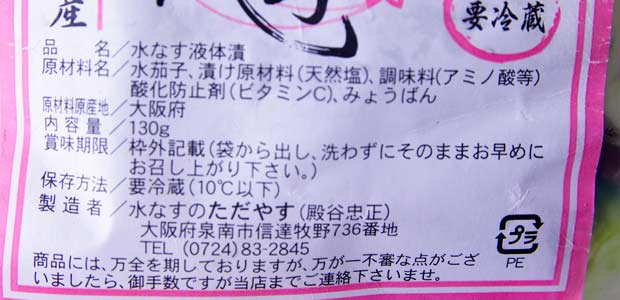 産
要冷蔵
品名/水なす液体漬
原材料名/水茄子、漬け原材料(天然塩)、調味料(アミノ酸等)
酸化防止剤(ビタミンC)、みょうばん
原材料原産地/大阪府
内容量/130g
賞味期限/枠外記載(袋から出し、洗わずにそのままお早めに
お召し上がり下さい。)
保存方法/要冷蔵(10℃以下)
製造者/水なすのただやす(殿谷忠正)
大阪府泉南市信達牧野736番地
TEL (0724)83-2845
プラ
PE
商品には、万全を期しておりますが、万が一不審な点がござ
いましたら、御手数ですが当店までご連絡下さいませ。